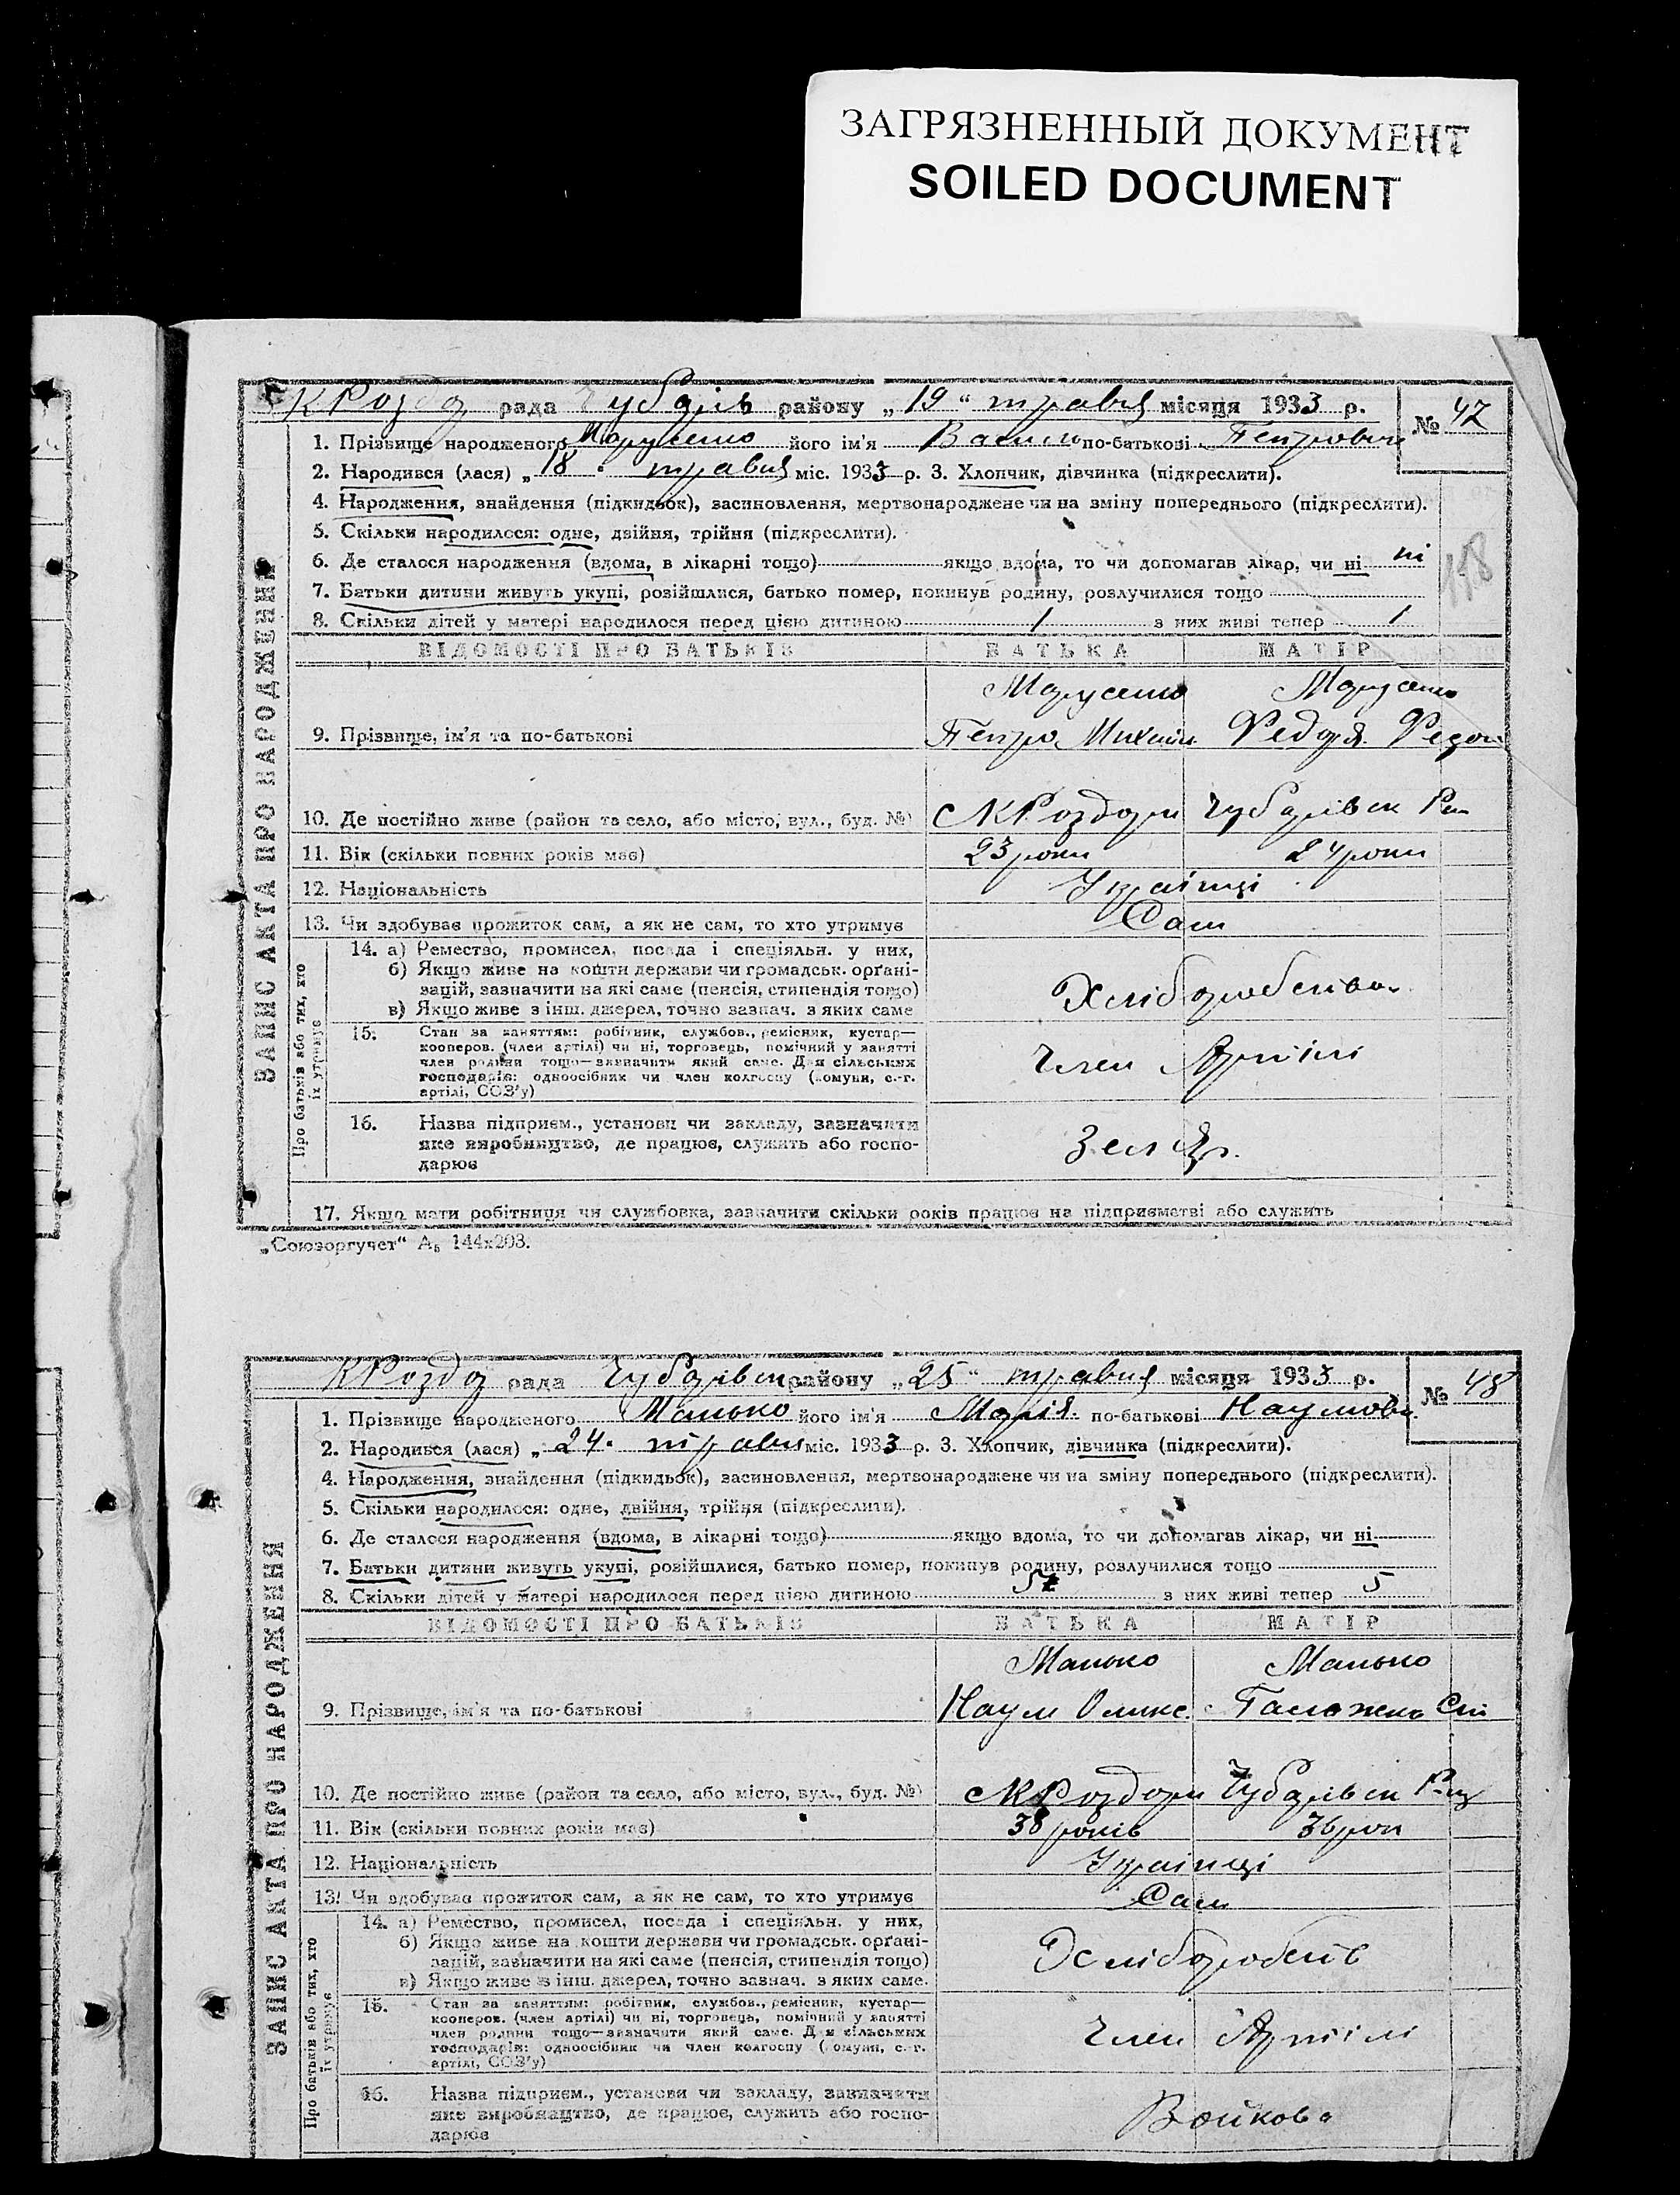 ЗАГРЯЗНЕННЫЙ ДОКУМЕНТ
SOILED DOCUMENT
рада району „19“ травня місяця 1933 р. № 47
1. Прізвище народженого його ім'я Василь по-батькові Петрович
2. Народився (лася) „18 травня міс. 1933 р. 3. Хлопчик, дівчинка (підкреслити).
4. Народження, знайдення (підкидьок), засиновлення, мертвонароджене чи на зміну попереднього (підкреслити).
5. Скільки народилося: одне, двійня, трійня (підкреслити).
6. Де сталося народження (вдома, в лікарні тощо) якщо вдома, то чи допомагав лікар, чи ні ні
7. Батьки дитини живуть укупі, розійшлися, батько помер, покинув родину, розлучилися тощо
118
8. Скільки дітей у матері народилося перед цією дитиною 1 з них живі тепер 1
ВІДОМОСТІ ПРО БАТЬКІВ БАТЬКА МАТІР
9. Прізвище, ім'я та по-батькові Петро
10. Де постійно живе (район та село, або місто, вул., буд. №)
11. Вік (скільки повних років має) 23 роки 24 роки
12. Національність Українці
13. Чи здобуває прожиток сам, а як не сам, то хто утримує Сам
14. а) Ремество, промисел, посада і спеціяльн. у них,
б) Якщо живе на кошти держави чи громадськ. орґані-
зацій, зазначити на які саме (пенсія, стипендія тощо)
в) Якщо живе з інш. джерел, точно зазнач. з яких саме
15. Стан за заняттям: робітник, службов., ремісник, кустар—
кооперов. (член артілі) чи ні, торговець, помічний у занятті
член родини тощо—зазначити який саме. Для сільських Член Артілі
господарів: одноосібник чи член колгоспу (комуни, с.-г.
артілі, СОЗ'у)
16. Назва підприєм., установи чи закладу, зазначити
яке виробництво, де працює, служить або госпо-
дарює
17. Якщо мати робітниця чи службовка, зазначити скільки років працює на підприємстві або служить
ЗАПИС АКТА ПРО НАРОДЖЕННЯ
Про батьків або тих, хто
їх утримує
„Союзоргучет“ А₅ 144х203.
рада району „25“ травня місяця 1933 р. № 48
1. Прізвище народженого Манько його ім'я Марія по-батькові Наумовн
2. Народився (лася) „24 травня міс. 1933 р. 3. Хлопчик, дівчинка (підкреслити).
4. Народження, знайдення (підкидьок), засиновлення, мертвонароджене чи на зміну попереднього (підкреслити).
5. Скільки народилося: одне, двійня, трійня (підкреслити).
6. Де сталося народження (вдома, в лікарні тощо) якщо вдома, то чи допомагав лікар, чи ні
7. Батьки дитини живуть укупі, розійшлися, батько помер, покинув родину, розлучилися тощо
8. Скільки дітей у матері народилося перед цією дитиною з них живі тепер 5
ВІДОМОСТІ ПРО БАТЬКІВ БАТЬКА МАТІР
Манько Манько
9. Прізвище, ім'я та по-батькові Наум
10. Де постійно живе (район та село, або місто, вул., буд. №)
11. Вік (скільки повних років має) 38 років 36 рок
12. Національність Українці
13. Чи здобуває прожиток сам, а як не сам, то хто утримує Сам
14. а) Ремество, промисел, посада і спеціяльн. у них,
б) Якщо живе на кошти держави чи громадськ. орґані-
зацій, зазначити на які саме (пенсія, стипендія тощо)
в) Якщо живе з інш. джерел, точно зазнач. з яких саме.
15. Стан за заняттям: робітник, службов., ремісник, кустар—
кооперов. (член артілі) чи ні, торговець, помічний у занятті
член родини тощо—зазначити який саме. Для сільських Член Артілі
господарів: одноосібник чи член колгоспу (комуни, с.-г.
артілі, СОЗ'у)
16. Назва підприєм., установи чи закладу, зазначити
яке виробництво, де працює, служить або госпо- Войкова
дарює
ЗАПИС АКТА ПРО НАРОДЖЕННЯ
Про батьків або тих, хто
їх утримує